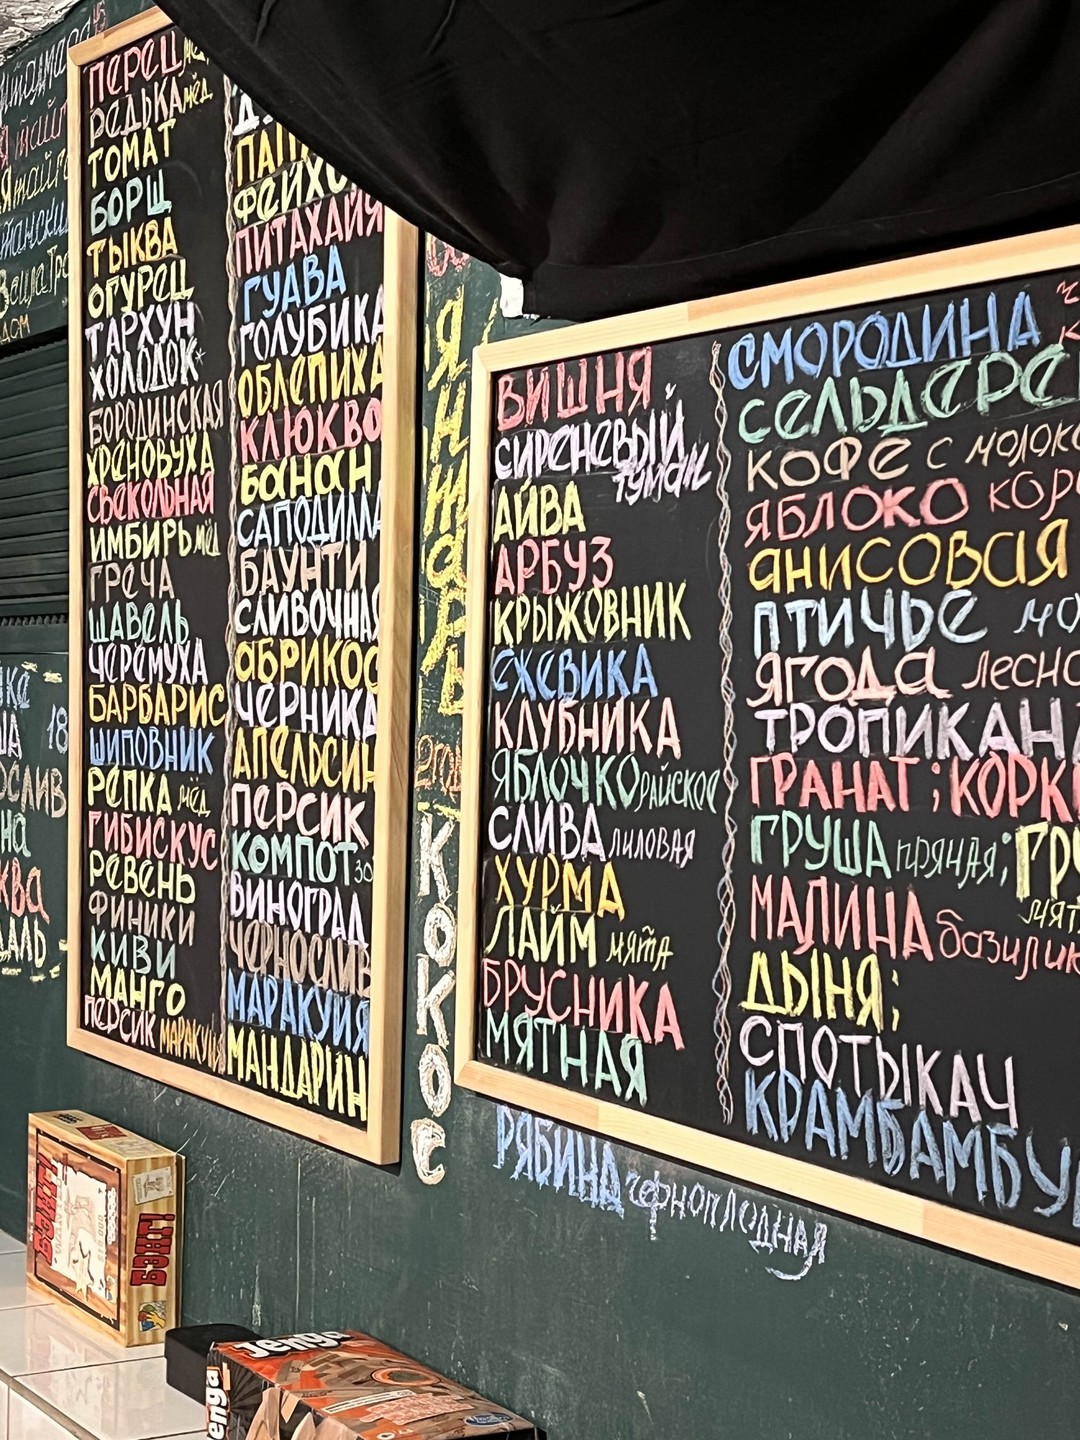 ПЕРЕЦ мёд
РЕДЬКА мёд
ТОМАТ
БОРЩ
ТЫКВА
ОГУРЕЦ
ТАРХУН
ХОЛОДОК*
БОРОДИНСКАЯ
ХРЕНОВУХА
СВЕКОЛЬНАЯ
ИМБИРЬ мёд
ГРЕЧА
ЩАВЕЛЬ
ЧЕРЕМУХА
БАРБАРИС
ШИПОВНИК
РЕПКА мёд
ГИБИСКУС
РЕВЕНЬ
ФИНИКИ
КИВИ
МАНГО
ПЕРСИК МАРАКУЙЯ
ФЕЙХО
ПИТАХАЙЯ
ГУАВА
ГОЛУБИКА
ОБЛЕПИХА
КЛЮКВО
БАНАН
САПОДИЛЛА
БАУНТИ
СЛИВОЧНАЯ
АБРИКОС
ЧЕРНИКА
АПЕЛЬСИН
ПЕРСИК
КОМПОТ 30
ВИНОГРАД
ЧЕРНОСЛИВ
МАРАКУЙЯ
МАНДАРИН
ЯННТАРЬ
КОКОС
ВИШНЯ
СИРЕНЕВЫЙ
ТУМАН
АЙВА
АРБУЗ
КРЫЖОВНИК
ЕЖЕВИКА
КЛУБНИКА
ЯБЛОЧКО РАЙСКОЕ
СЛИВА ЛИЛОВАЯ
ХУРМА
ЛАЙМ МЯТА
БРУСНИКА
МЯТНАЯ
СМОРОДИНА
СЕЛЬДЕРЕ
КОФЕ С МОЛОКО
ЯБЛОКО КОР
АНИСОВАЯ
ПТИЧЬЕ МО
ЯГОДА ЛЕСНО
ТРОПИКАН
ГРАНАТ; КОРК
ГРУША ПРЯНАЯ; ГРУ
МЯТ
МАЛИНА базилик
ДЫНЯ;
СПОТЫКАЧ
КРАМБАМБУ
РЯБИНА черноплодная
БЭНГ!
БЭНГ!
Jenga
enga